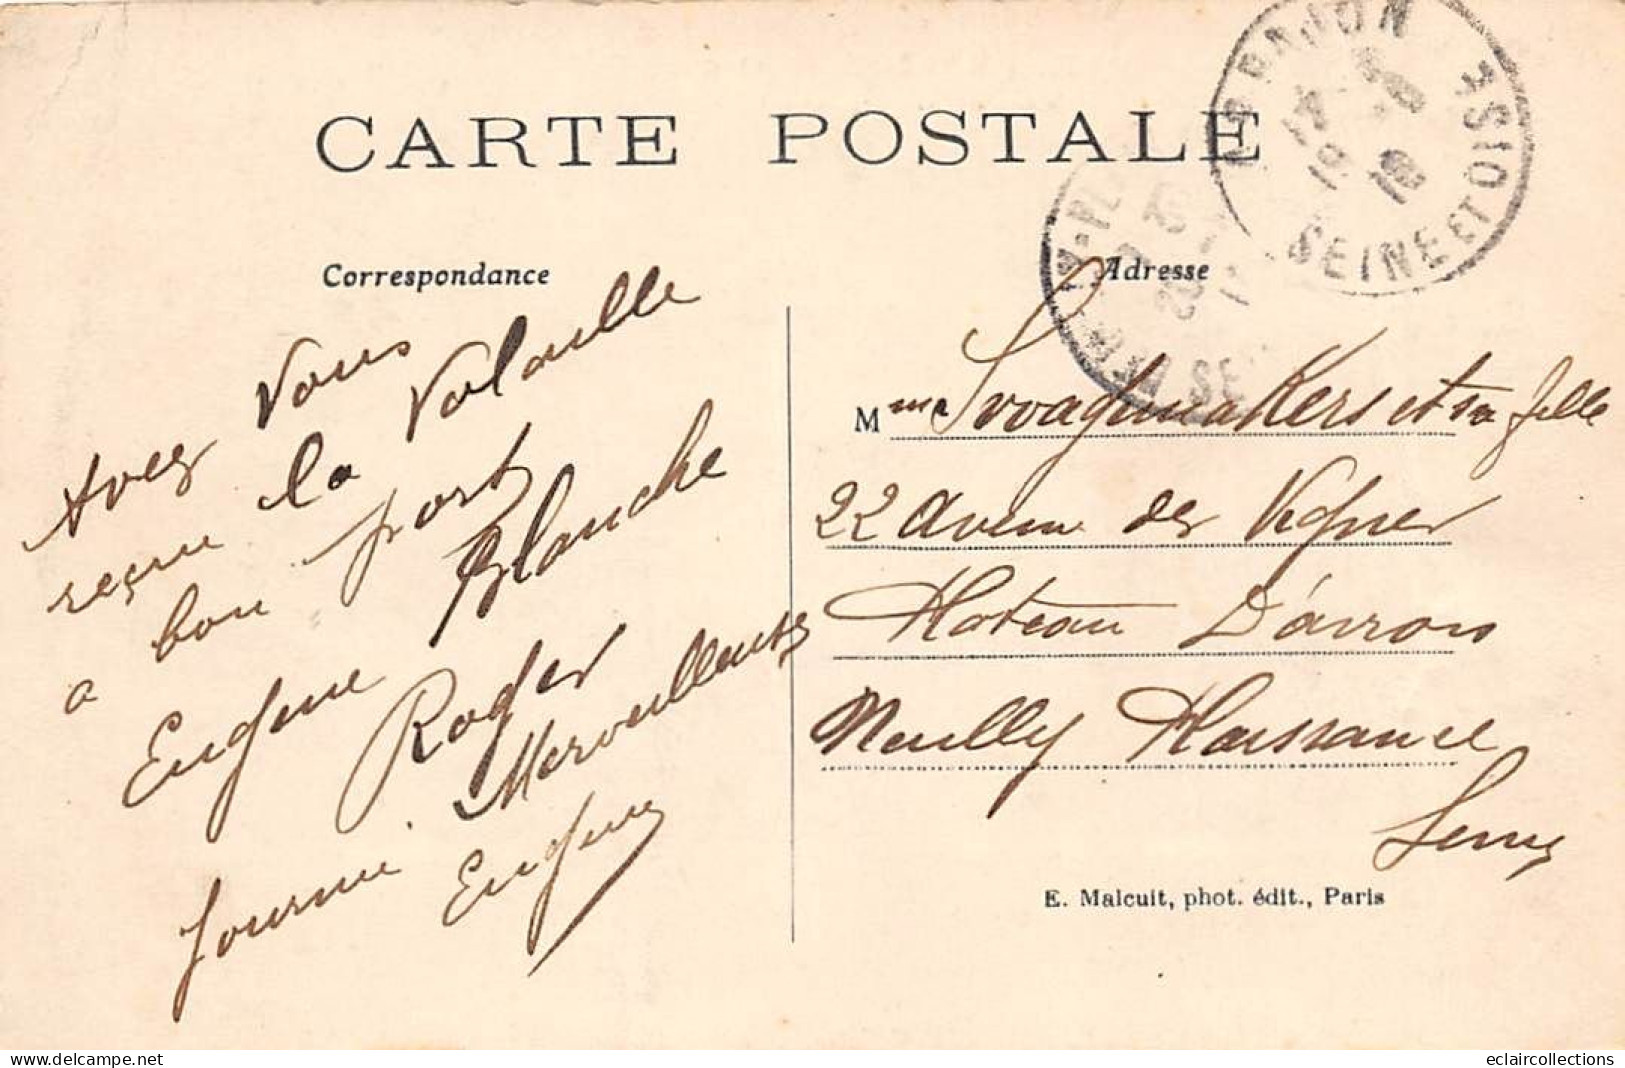 CARTE POSTALE
ARPAJON
17 -
19 - 10
SEINE ET OISE
Correspondance
Adresse
Avez Vous
reçue la Volaille
a bon port
Eugene Blanche
Roger
Journée Merveilleuse
Eugene
Mme et sa fille
22 Avenue des Vignes
Plateau D'avron
Neuilly Plaisance
Seine
E. Malcuit, phot. édit., Paris
www.delcampe.net
eclaircollections